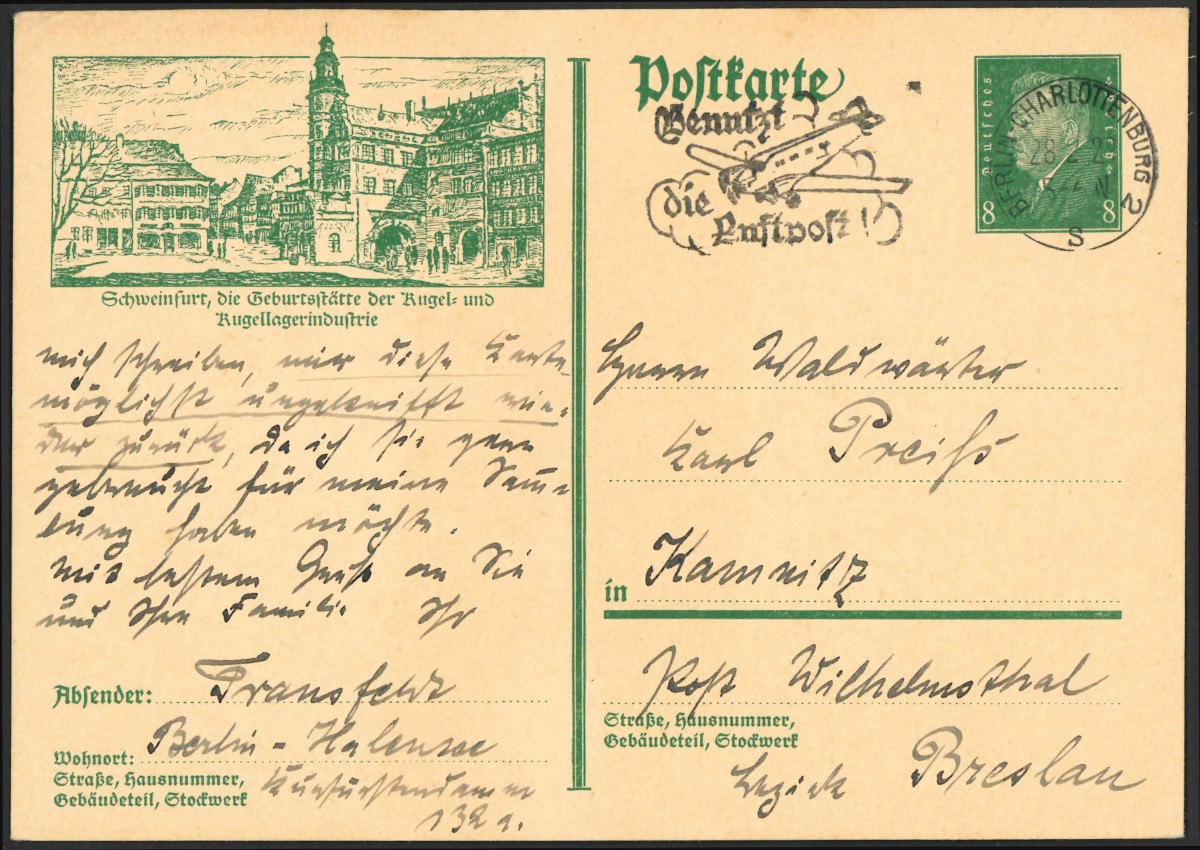 Schweinfurt, die Geburtsstätte der Kugel- und
Kugellagerindustrie
mich schreiben, mir diese Karte
möglichst ungeknifft wie-
der zurück, da ich sie gern
gebraucht für meine Samm-
lung haben möchte.
Mit bestem Gruß an Sie
und Ihre Familie Ihr
Absender: Transfeldt
Wohnort: Berlin-Halensee
Straße, Hausnummer,
Gebäudeteil, Stockwerk
Kurfürstendamm
132 a.
Postkarte
Benutzt
die
Luftpost!
Deutsches
8 8
BERLIN-CHARLOTTENBURG 2
28
S
Herrn Waldwärter
Karl Preiß
in Kamnitz
Post Wilhelmsthal
Straße, Hausnummer,
Gebäudeteil, Stockwerk
Bezirk Breslau